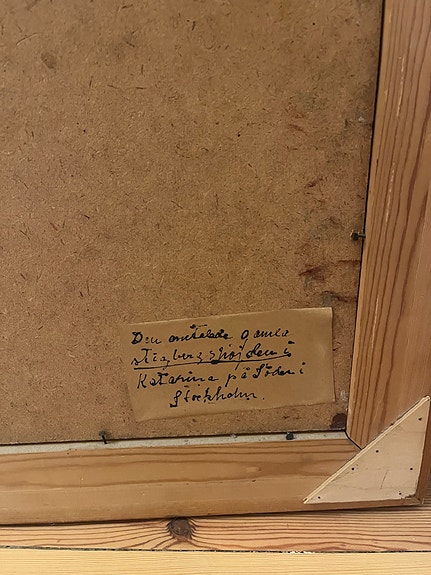 Den omtalade gamla
stigbergshöjden i
Katarina på Söder i
Stockholm.